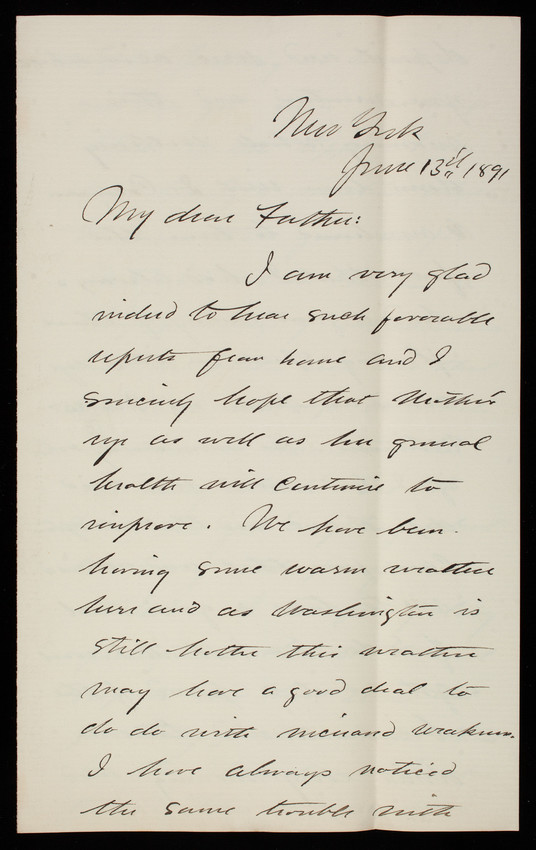 New York
June 13th 1891
My dear Father:
I am very glad
indeed to hear such favorable
reports from home and I
sincerely hope that Mother's
as well as her general
health will continue to
improve. We have been
having some warm weather
here and as Washington is
still hotter this weather
may have a good deal to
do do with increased weakness.
I have always noticed
the same trouble with